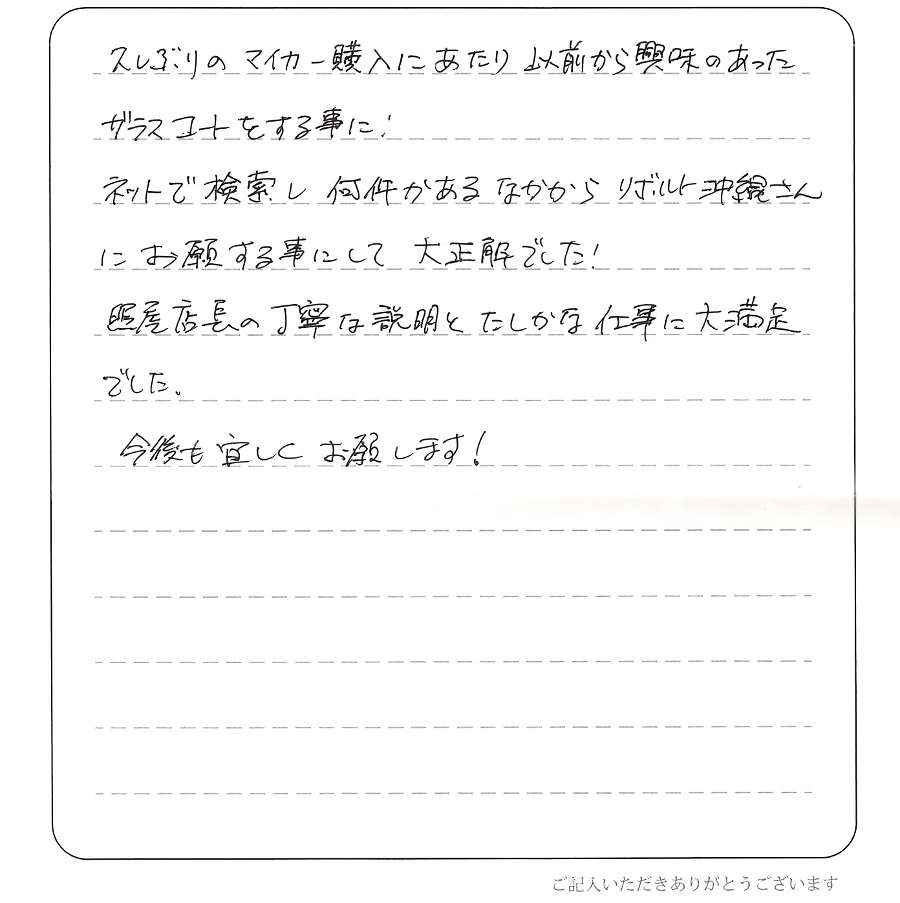 久しぶりの マイカー購入にあたり 以前から興味のあった
ガラスコートをする事に!
ネットで検索し 何件かあるなかから リボルト沖縄さん
にお願する事にして 大正解でした!
照屋店長の丁寧な説明とたしかな仕事に大満足
でした。
今後も宜しくお願します!
ご記入いただきありがとうございます